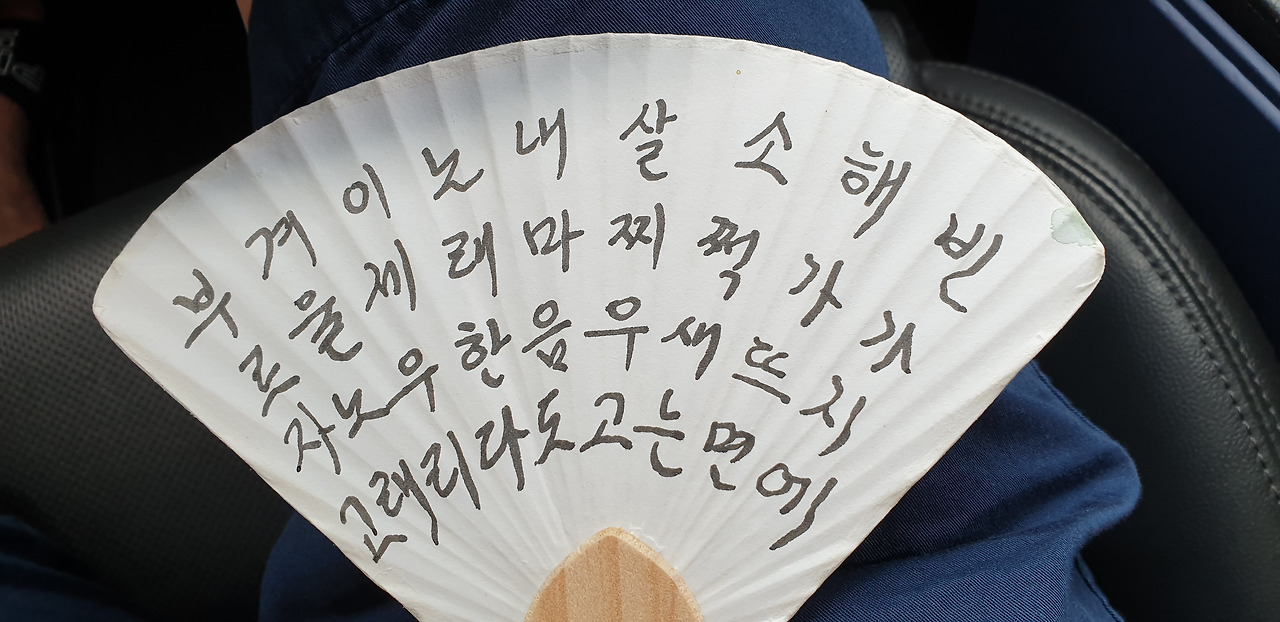 빈가지에
해가뜨면
소쩍새는
살찌우고
내마음도
노래한라
이제우리
겨울노래
부르자고